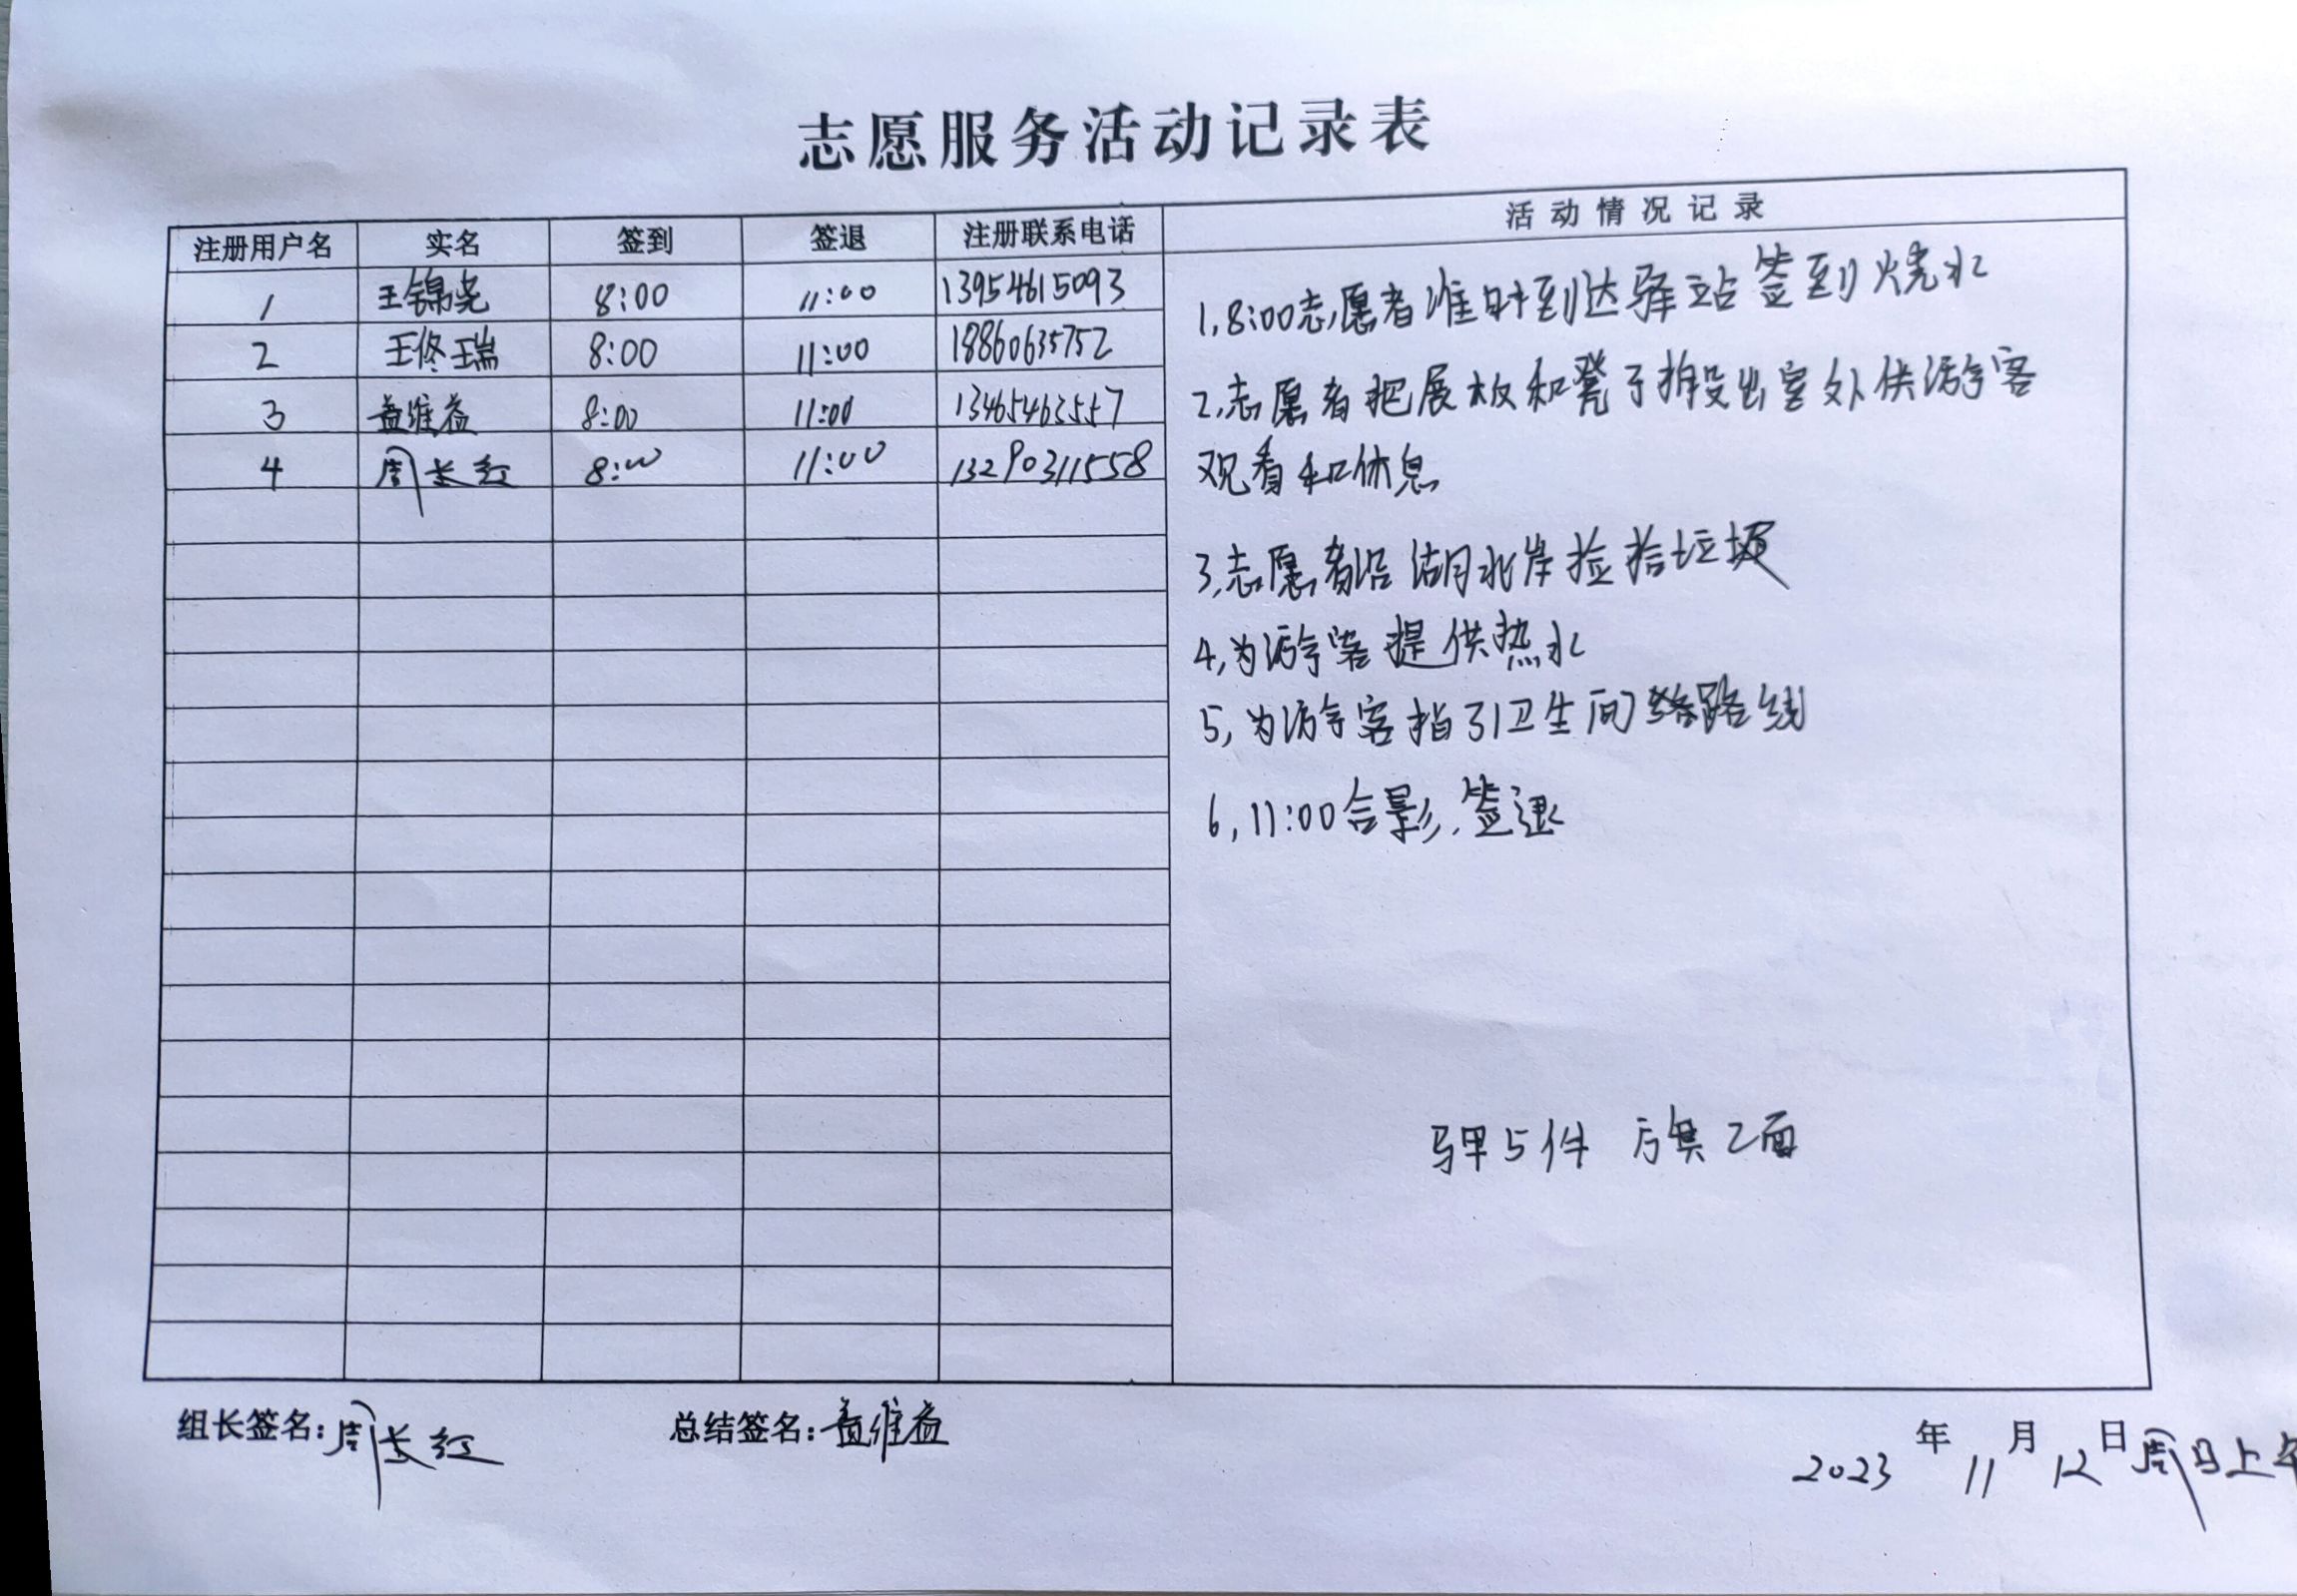 志愿服务活动记录表
注册用户名 实名 签到 签退 注册联系电话 活动情况记录
1 王锦尧 8:00 11:00 13954615093
2 王佟瑞 8:00 11:00 18860635752
3 盖维益 8:00 11:00 13465463557
4 周长红 8:00 11:00 13290311558
1,8:00志愿者准时到达驿站签到烧水
2,志愿者把展板和凳子搬出室外供游客
观看和休息
3,志愿者沿湖北岸捡拾垃圾
4,为游客提供热水
5,为游客指引卫生间路线
6,11:00合影,签退
马甲5件 旗2面
组长签名:周长红 总结签名:盖维益 2023年11月12日周日上午